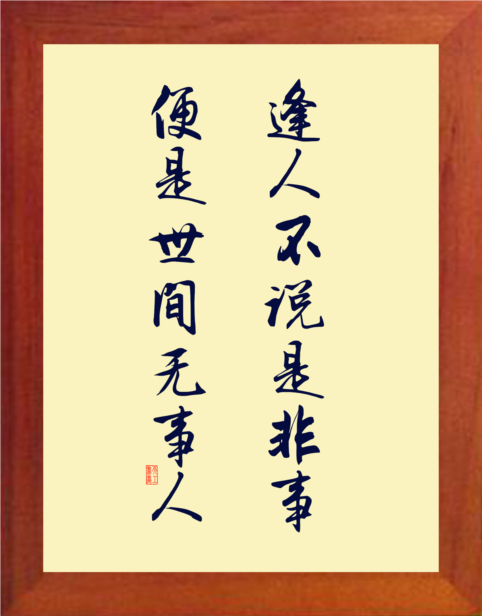 逢人不说是非事
便是世间无事人